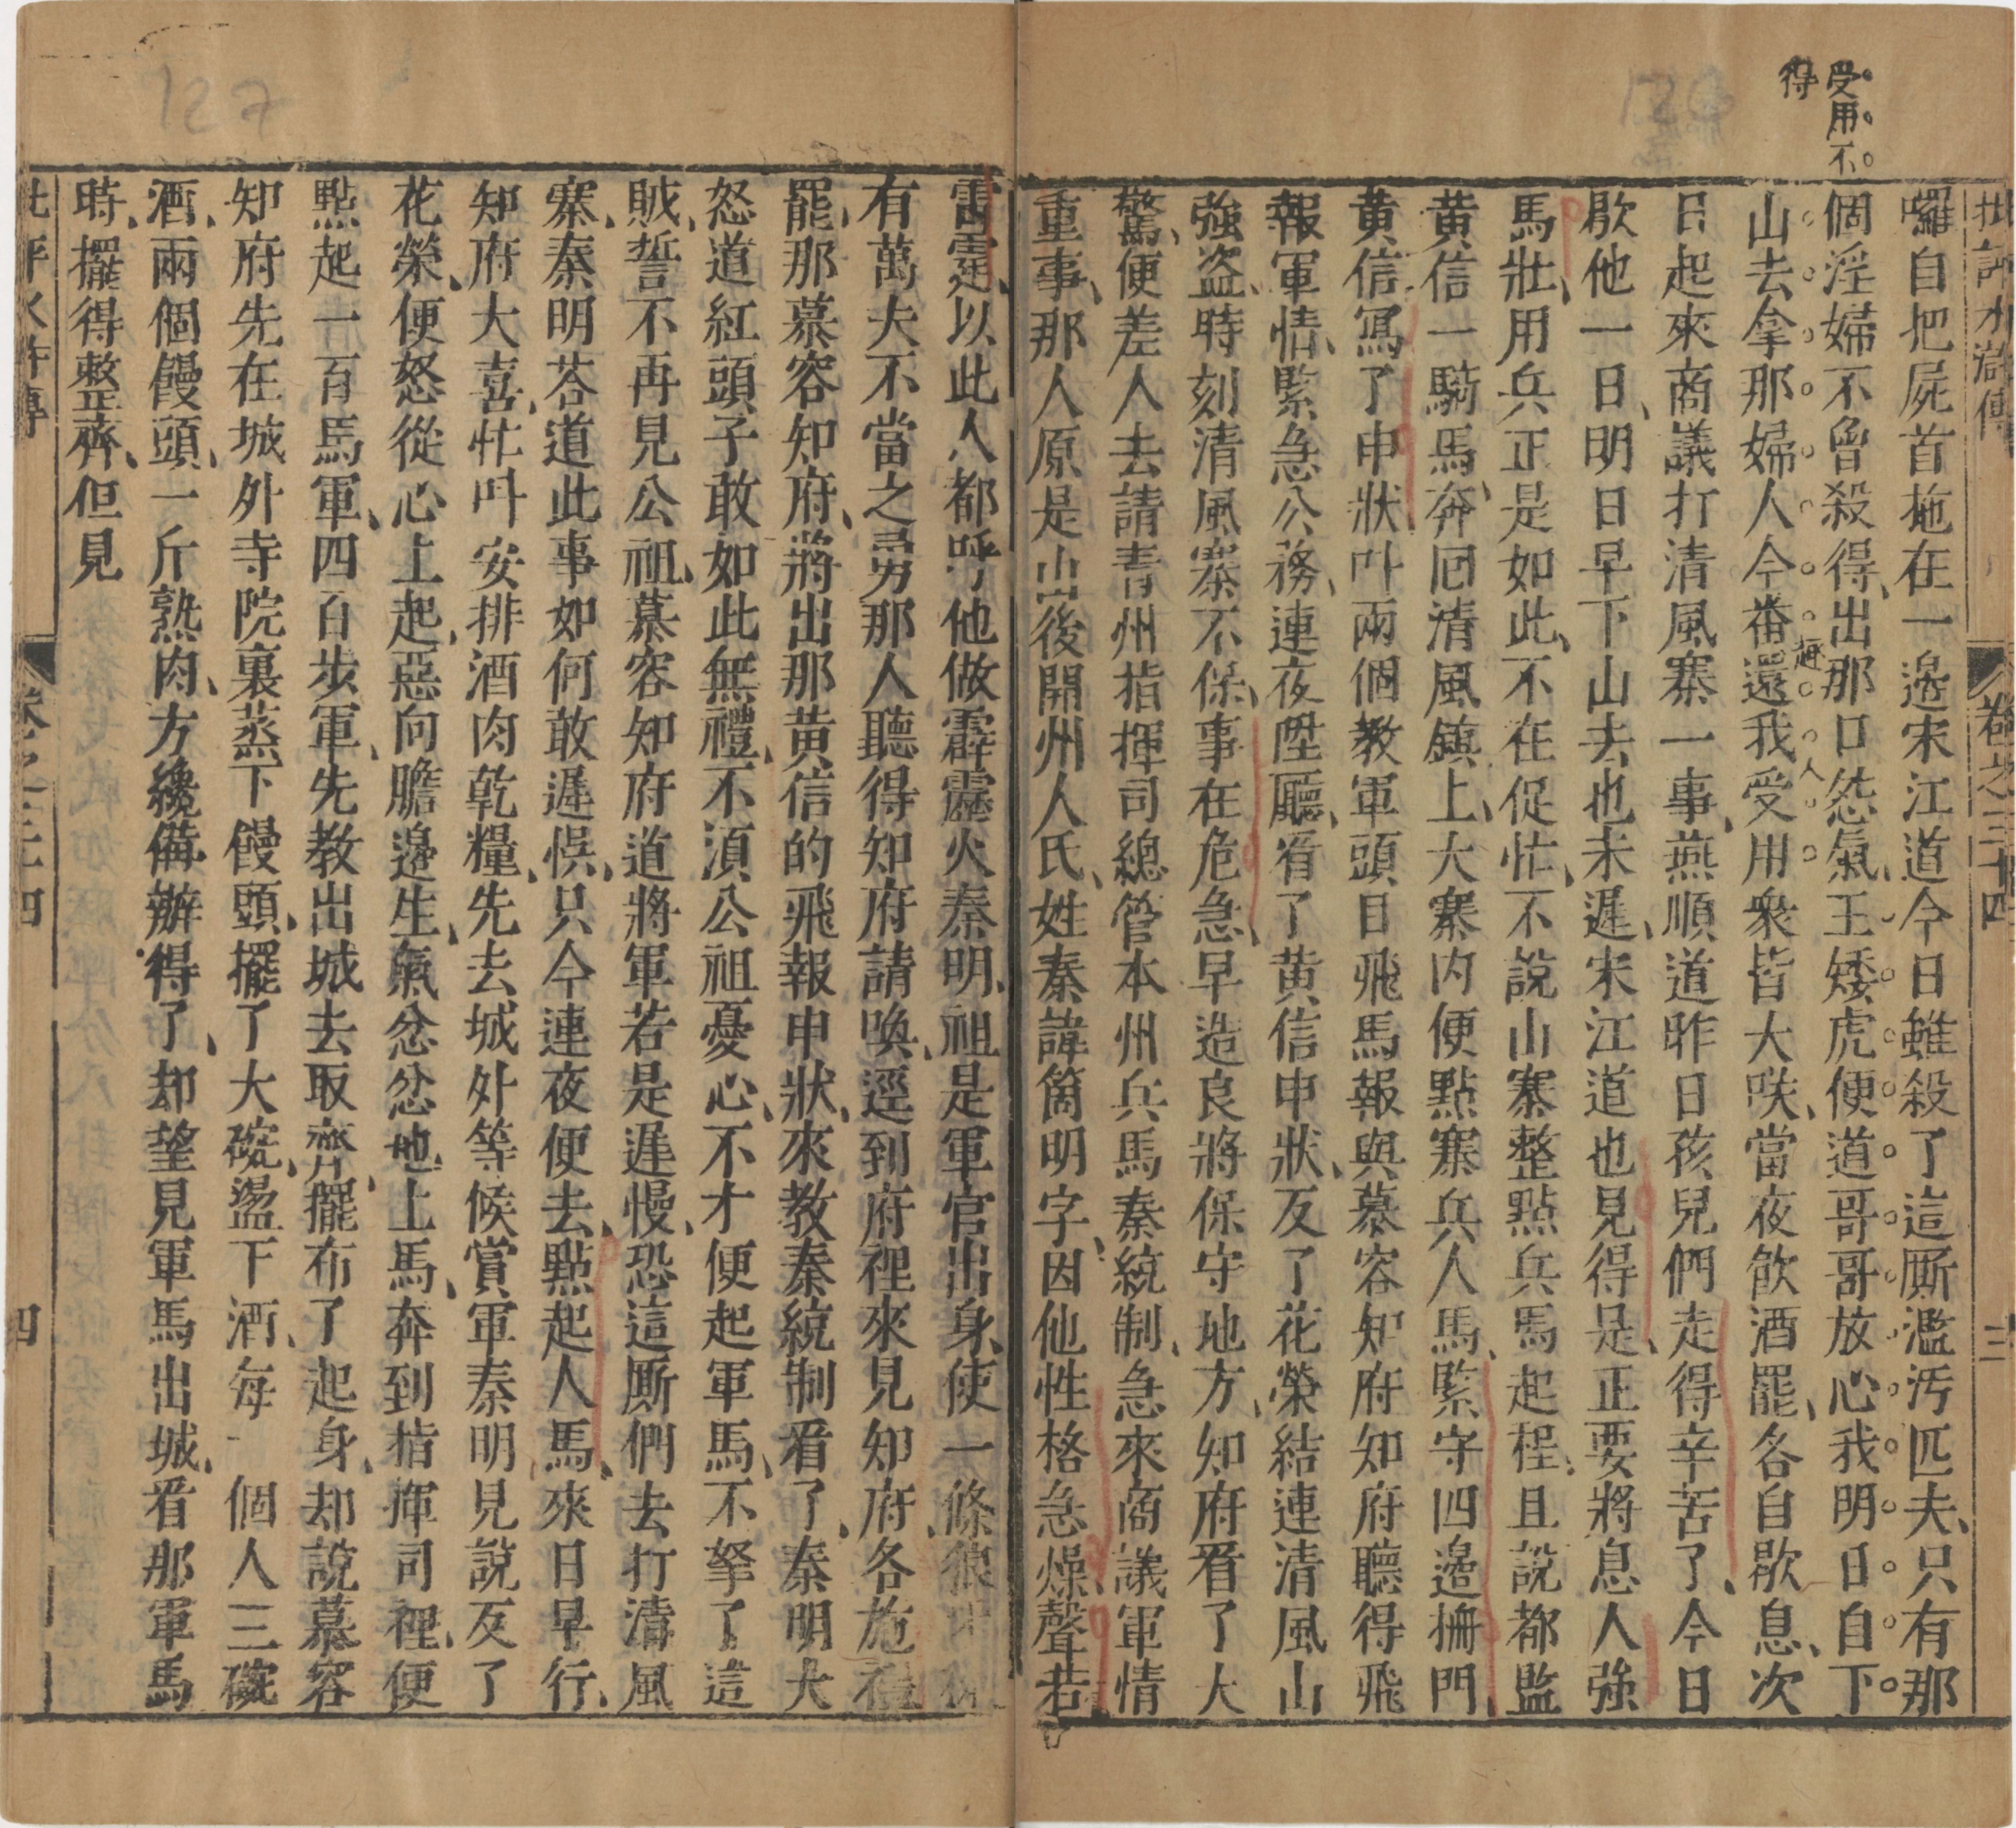 受用不
得
批評水滸傳
卷之三十四
三
囉自把屍首拖在一邊宋江道今日雖殺了這厮濫汚匹夫只有那
個淫婦不曾殺得出那口怨氣王矮虎便道哥哥放心我明日自下
山去拿那婦人今番還我受用衆皆大咲當夜飲酒罷各自歇息次
趣
人
日起來商議打清風寨一事燕順道昨日孩兒們走得辛苦了今日
歇他一日明日早下山去也未遲宋江道也見得是正要將息人強
馬壯用兵正是如此不在促忙不說山寨整點兵馬起程且說都監
黄信一騎馬奔回清風鎮上大寨内便點寨兵人馬緊守四邊柵門
黄信寫了申狀叶兩個教軍頭目飛馬報與慕容知府知府聽得飛
報軍情緊急公務連夜陞廳看了黄信申狀反了花榮結連清風山
強盗時刻清風寨不保事在危急早造良將保守地方知府看了大
驚便差人去請青州指揮司總管本州兵馬秦統制急來商議軍情
重事那人原是山後開州人氏姓秦諱箇明字因他性格急燥聲若
雷霆以此人都呼他做霹靂火秦明祖是軍官出身使一條狼牙棍
有萬夫不當之勇那人聽得知府請喚逕到府裡來見知府各施禮
罷那慕容知府將出那黄信的飛報申狀來教秦統制看了秦明大
怒道紅頭子敢如此無禮不須公祖憂心不才便起軍馬不拏了這
賊誓不再見公祖慕容知府道將軍若是遲慢恐這厮們去打清風
寨秦明荅道此事如何敢遲悞只今連夜便去點起人馬來日早行
知府大喜忙叶安排酒肉乾糧先去城外等候賞軍秦明見說反了
花榮便怒從心上起惡向膽邊生氣忿忿地上馬奔到指揮司裡便
點起一百馬軍四百步軍先教出城去取齊擺布了起身却說慕容
知府先在城外寺院裏蒸下饅頭擺了大碗盪下酒每一個人三碗
酒兩個饅頭一斤熟肉方纔備辦得了却望見軍馬出城看那軍馬
時擺得整齊但見
批評水滸傳
卷之三十四
四